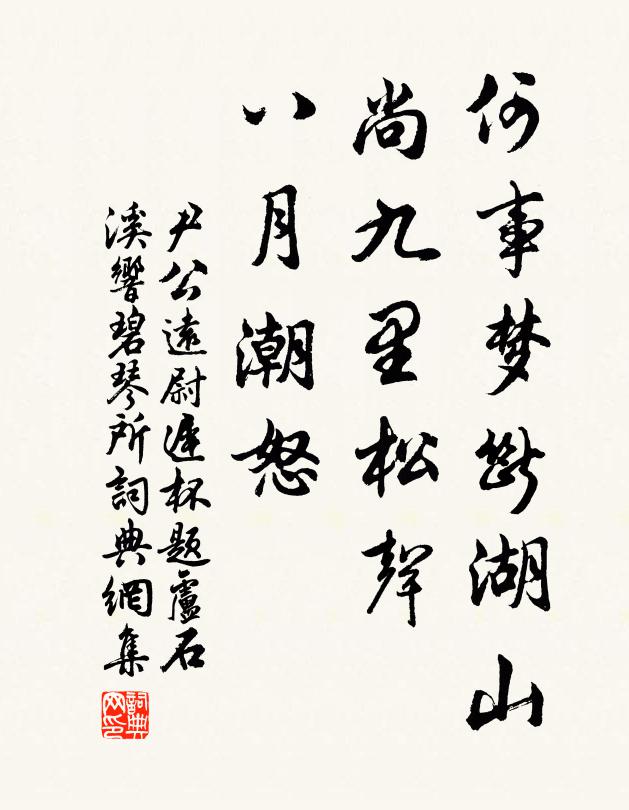 何事梦断湖山
尚九里松声
八月潮怒
尹公遠尉遲杯题盧石
溪響碧琴所詞典網集
詞典
网印